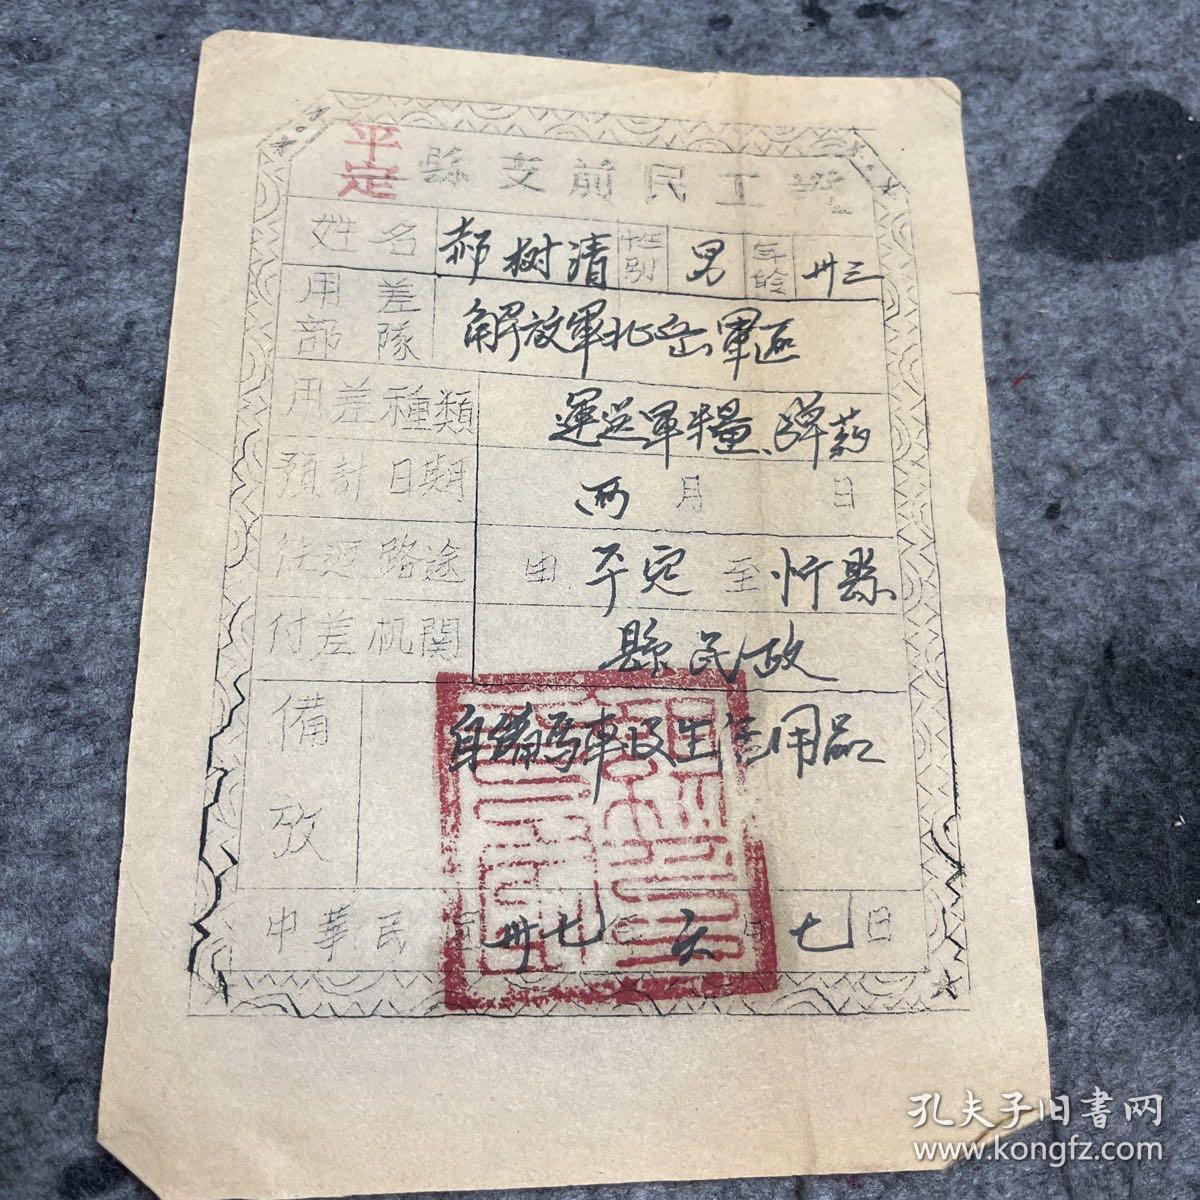 平定縣支前民工證
姓名 郝树清 性别 男 年龄 卅三
用差部隊 解放軍北岳軍區
用差種類 運送軍糧、弹药
預計日期 两月 日
往返路途 由平定至忻縣
付差机関 縣民政
備攷 自备馬車及生活用品
中華民国卅七年六月七日
孔夫子旧書网
www.kongfz.com